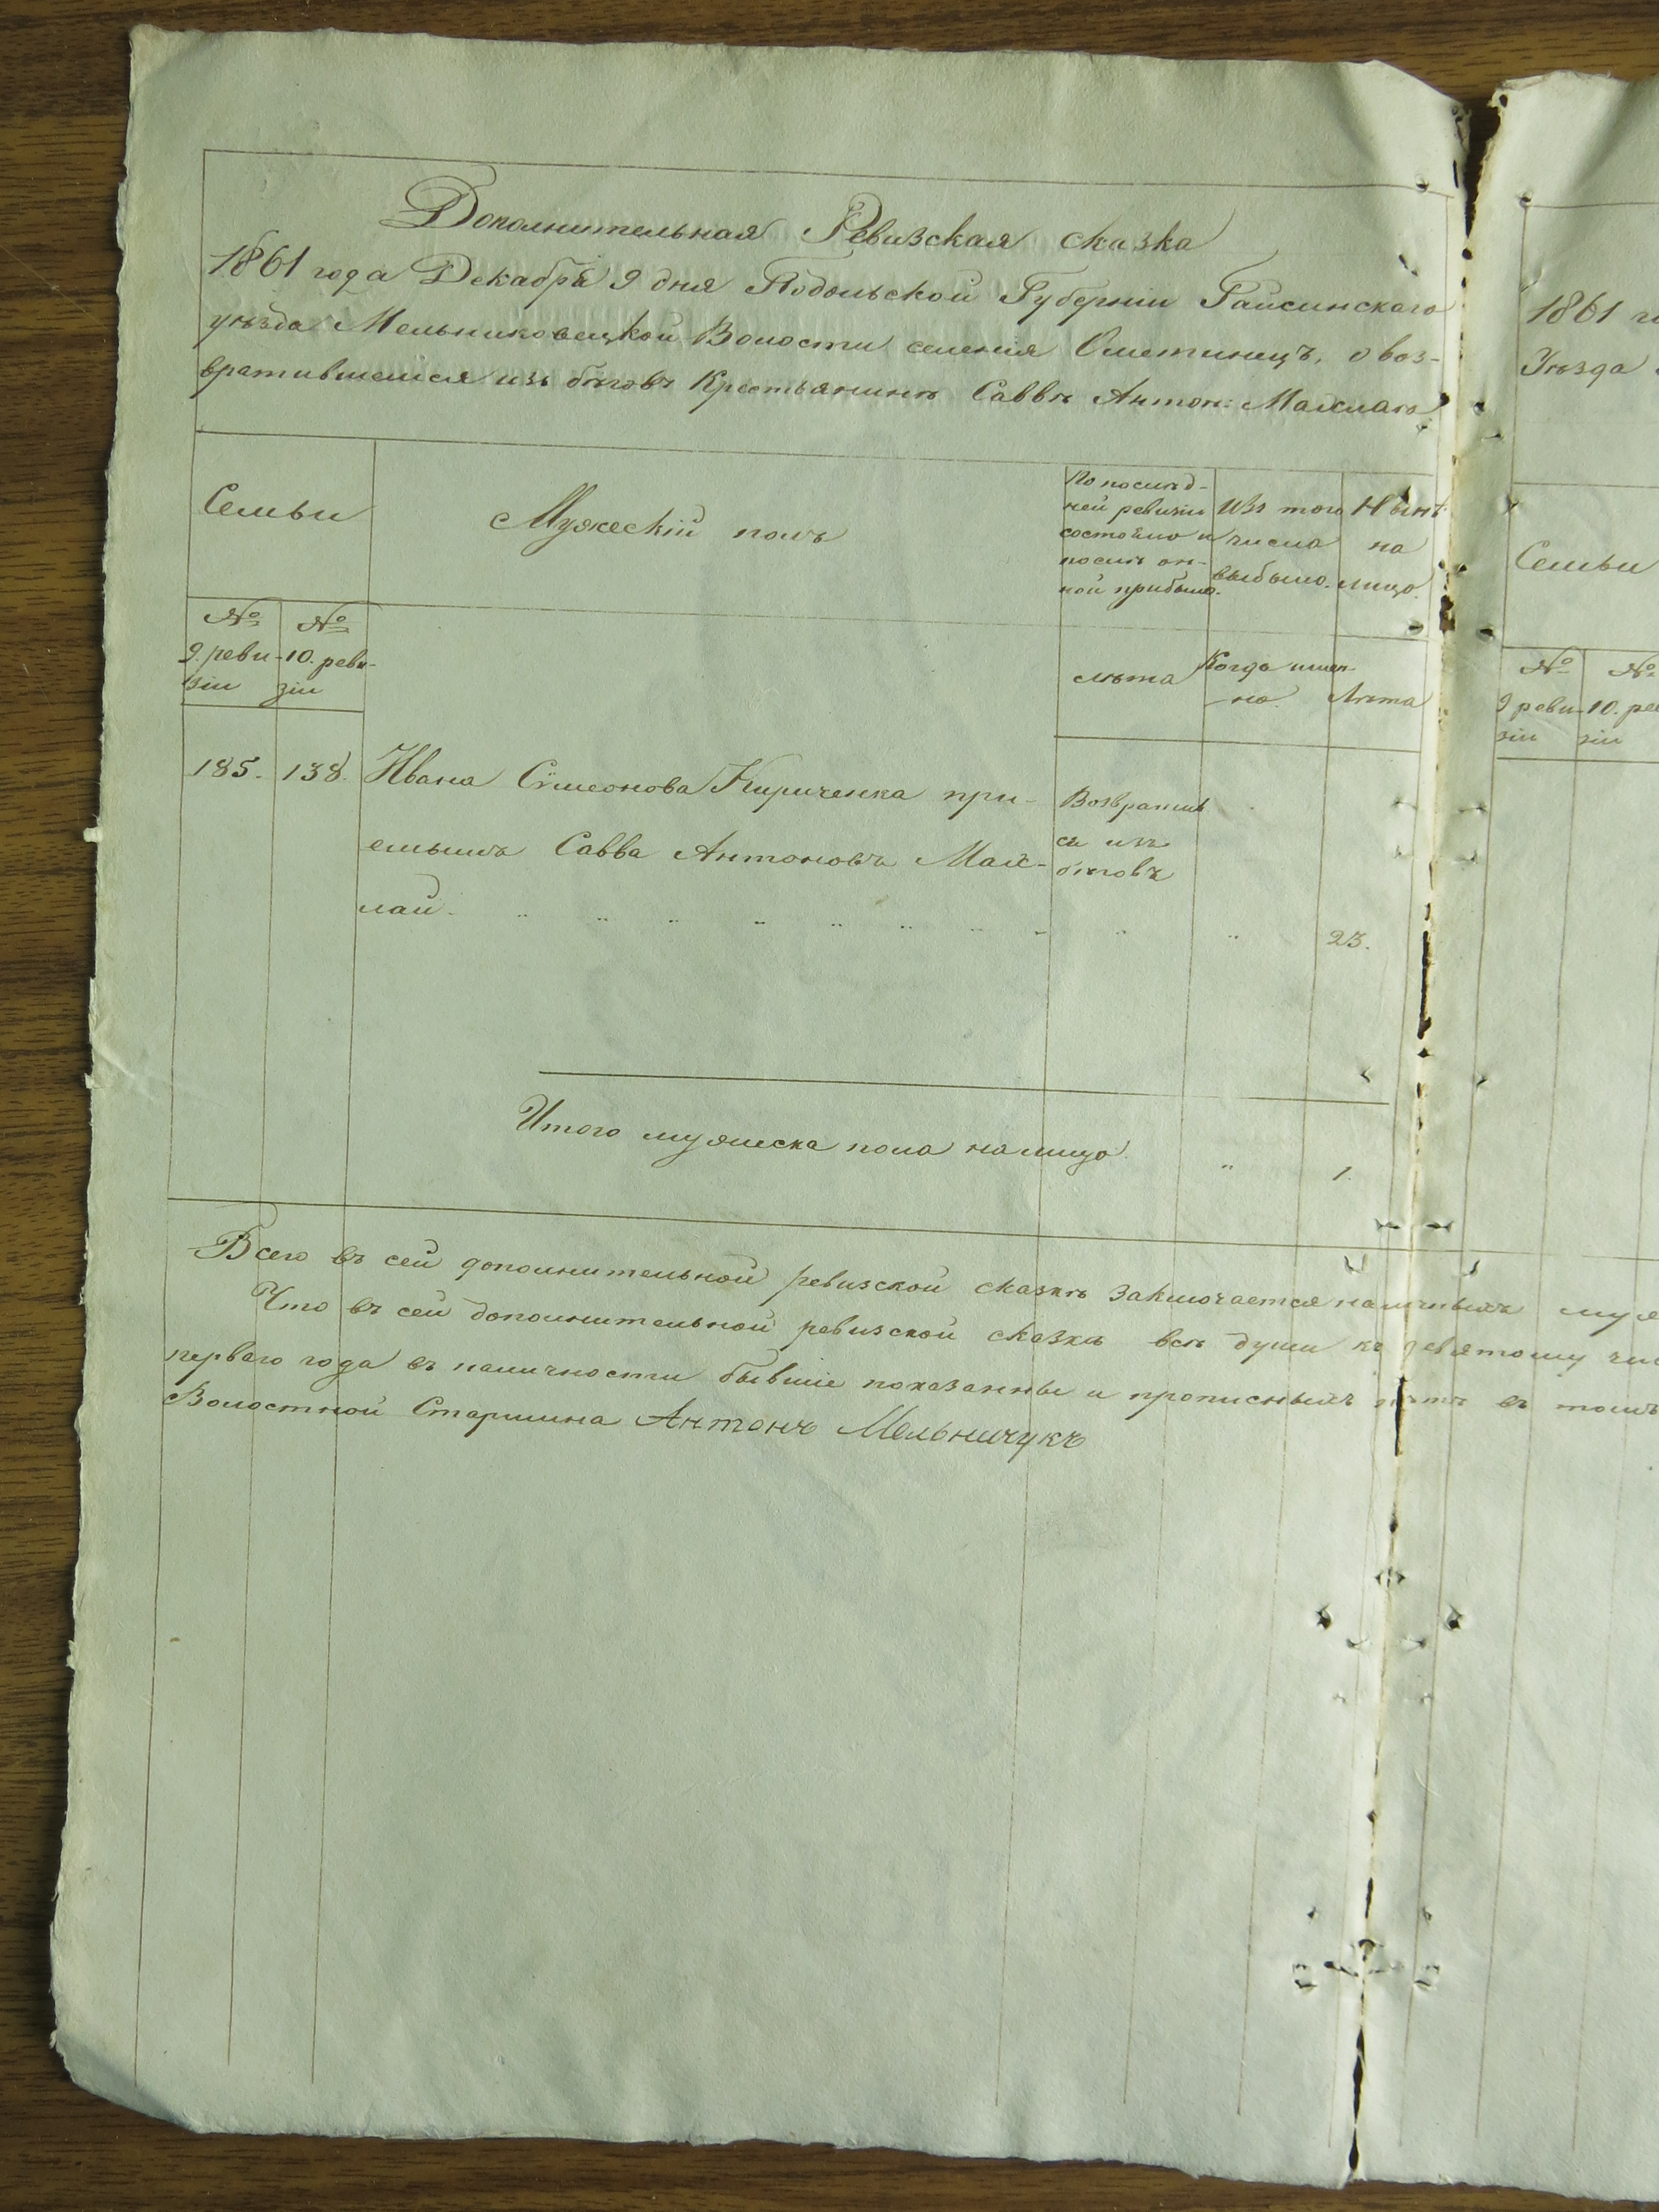 Дополнительная Ревизская сказка
1861 года Декабря 9 дня Подольской Губерніи Гайсинского
уѣзда Мельниковецкой Волости селенія Ометинецъ, о воз-
вратившемся изъ бѣговъ Крестьянинѣ Саввѣ Антон:
Семьи
Мужескій полъ
По послѣд-
ней ревизіи
состояло и
послѣ он-
ной прибыло.
Изъ того
числа
выбыло.
Нынѣ
на
лицо.
№ №
9. реви- 10. реви-
зіи зіи
лѣта
Когда имен-
но.
Лѣта
185. 138. Ивана Сѵмеонова Кириченка при-
емышъ Савва Антоновъ
лай.
Возвратив
сь изъ
бѣговъ
23.
Итого мужеска пола налицо " 1.
Всего въ сей дополнительной ревизской сказкѣ заключается наличныхъ муже
Что въ сей дополнительной ревизской сказкѣ всѣ души къ девятому чис
перваго года въ наличности бывшіе показанны и прописныхъ нѣтъ въ томъ
Волостной Старшина Антонъ Мельничукъ
1861 го
Уѣзда
Семьи
№ №
9 реви- 10. ре
зіи зіи